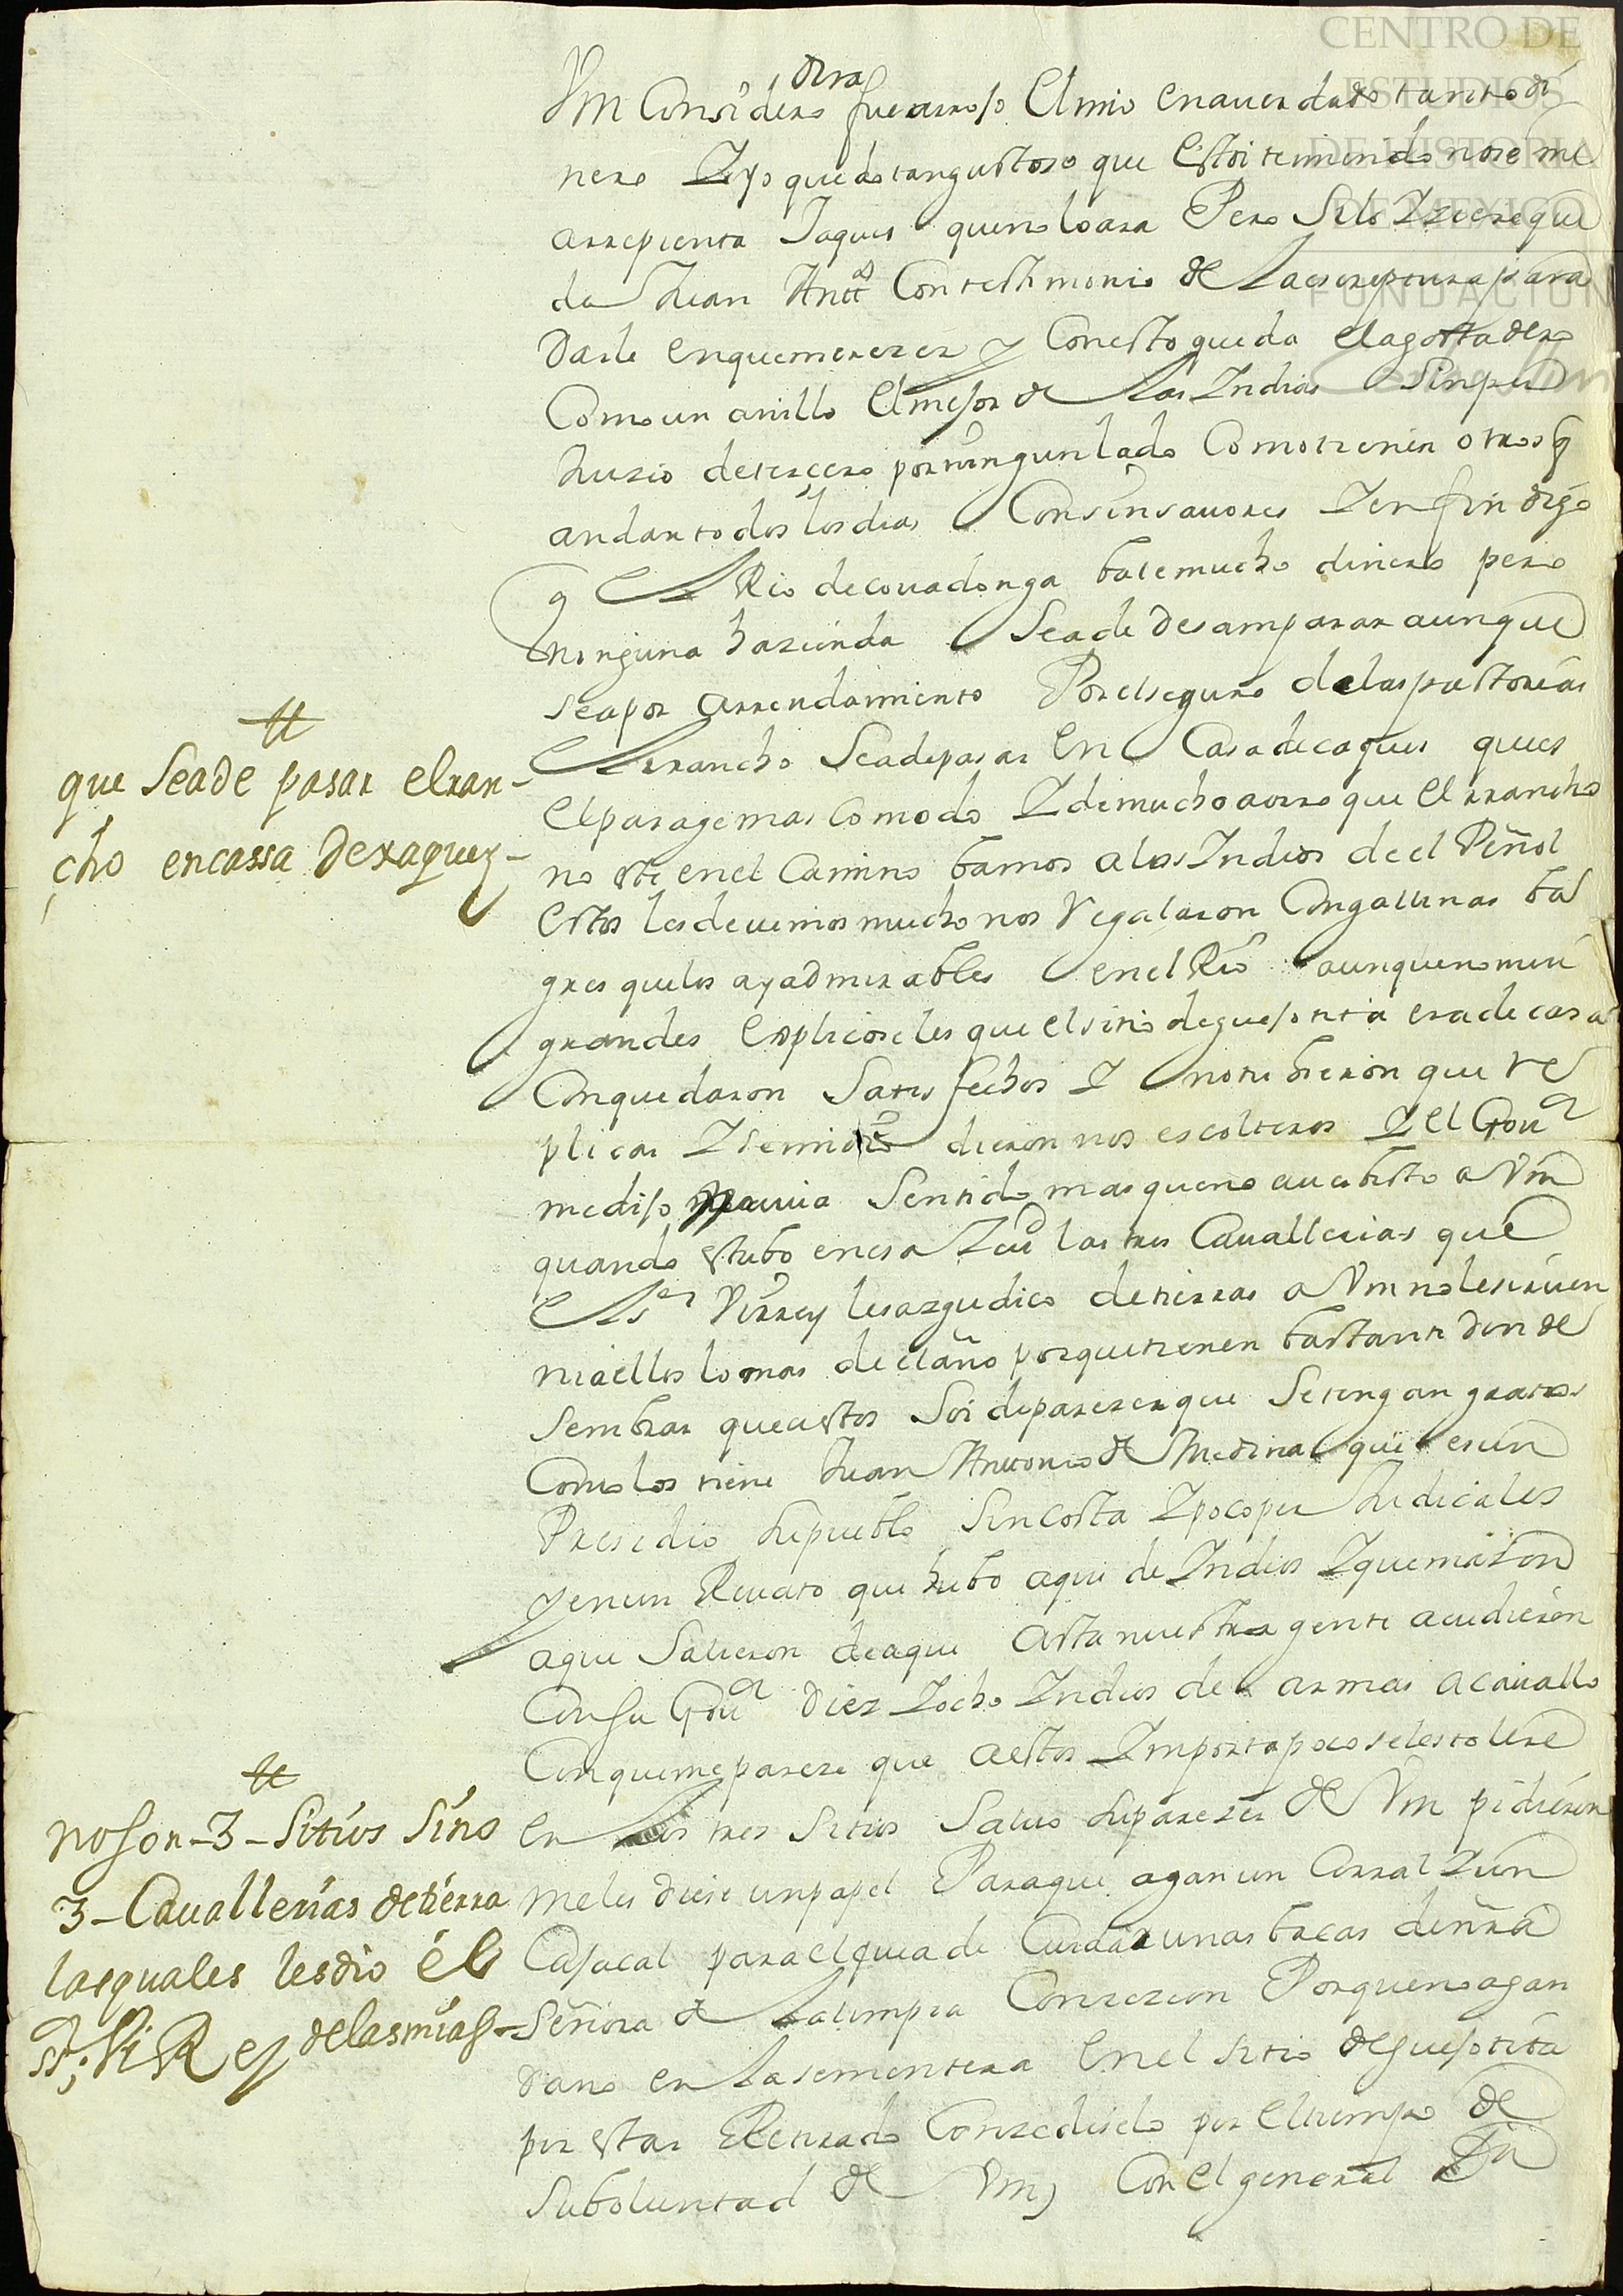 CENTRO DE
ESTUDIOS
DE HISTORIA
DE MEXICO
FUNDACION
Vm Considero otra fue arroso El mio en auer dado tanto di
nero Y yo quedo tan gustoso que Estoi temiendo no se me
arrepienta Jaques quien lo ara Pero Si lo Yziere que
da Juan Antt.o Con testimonio de La escreptura para
Darle en que merezer y Con esto queda el agostadero
Como un anillo El mejor de Las Indias Sin per
Juzio de terzero por ningun lado Como tienen otros q
andan todos los dias Con sin sauores Y en fin digo
q El Rio de couadonga bale mucho dinero pero
ninguna hazienda Se a de Desamparar aunque
sea por arrendamiento Por el seguro de las pastorias
El rrancho Se a de pasar En Casa de Jaques que es
El parage mas Comodo Y de mucho aorro que El rrancho
no esta en el Camino bamos a los Indios de el Peñol
Estos les deuemos mucho nos Regalaron Con gallinas ba
gres que los ay admirables en el Rio aunque no mui
grandes Explicoseles que el sitio de guejotita era de casa
Con quedaron Satisfechos Y no tubieron que Re
plicar Y se midio dieron nos escolteros Y el Gou.or
me dijo auia Sentido mas que no auer bisto a Vm
quando estubo en esa Ziu.d las tres Cauallerias que
El s.or Virrey les azgudico de tierras a Vm no le siruen
ni a ellos lo mas de el año porque tienen bastante donde
Sembrar que a estos Soi de parezer que Se tengan gratos
Como los tiene Juan Antonio de Medina que es un
Presidio Su pueblo Sin Costa Y poco per Judiciales
y en un Reuato que hubo aqui de Indios Y que mataron
aqui Salieron de aqui asta nuestra gente acudieron
Con su Gou.or Diez Y ocho Indios de armas a cauallo
Con que me pareze que a estos Ymporta poco se les tolere
En Los tres Sitios Saluo Su parezer de Vm pidieron
me les diese un papel Para que agan un Corral Y un
Cajacal para el que a de Cuidar unas bacas de ñra
Señora de La limpia Conzezion Porque no agan
Dano en La sementera En el Sitio de guejotita
por estar Retirado Conzediselo por El tiempo de
Su boluntad de Vm, Con El general
que Se a de pasar el ran-
cho en cassa De xaquez-
no son - 3 - Sitios Sino
3 - Cauallerias de tierra
las quales les dio el
sr. Vi Rey de las mias-